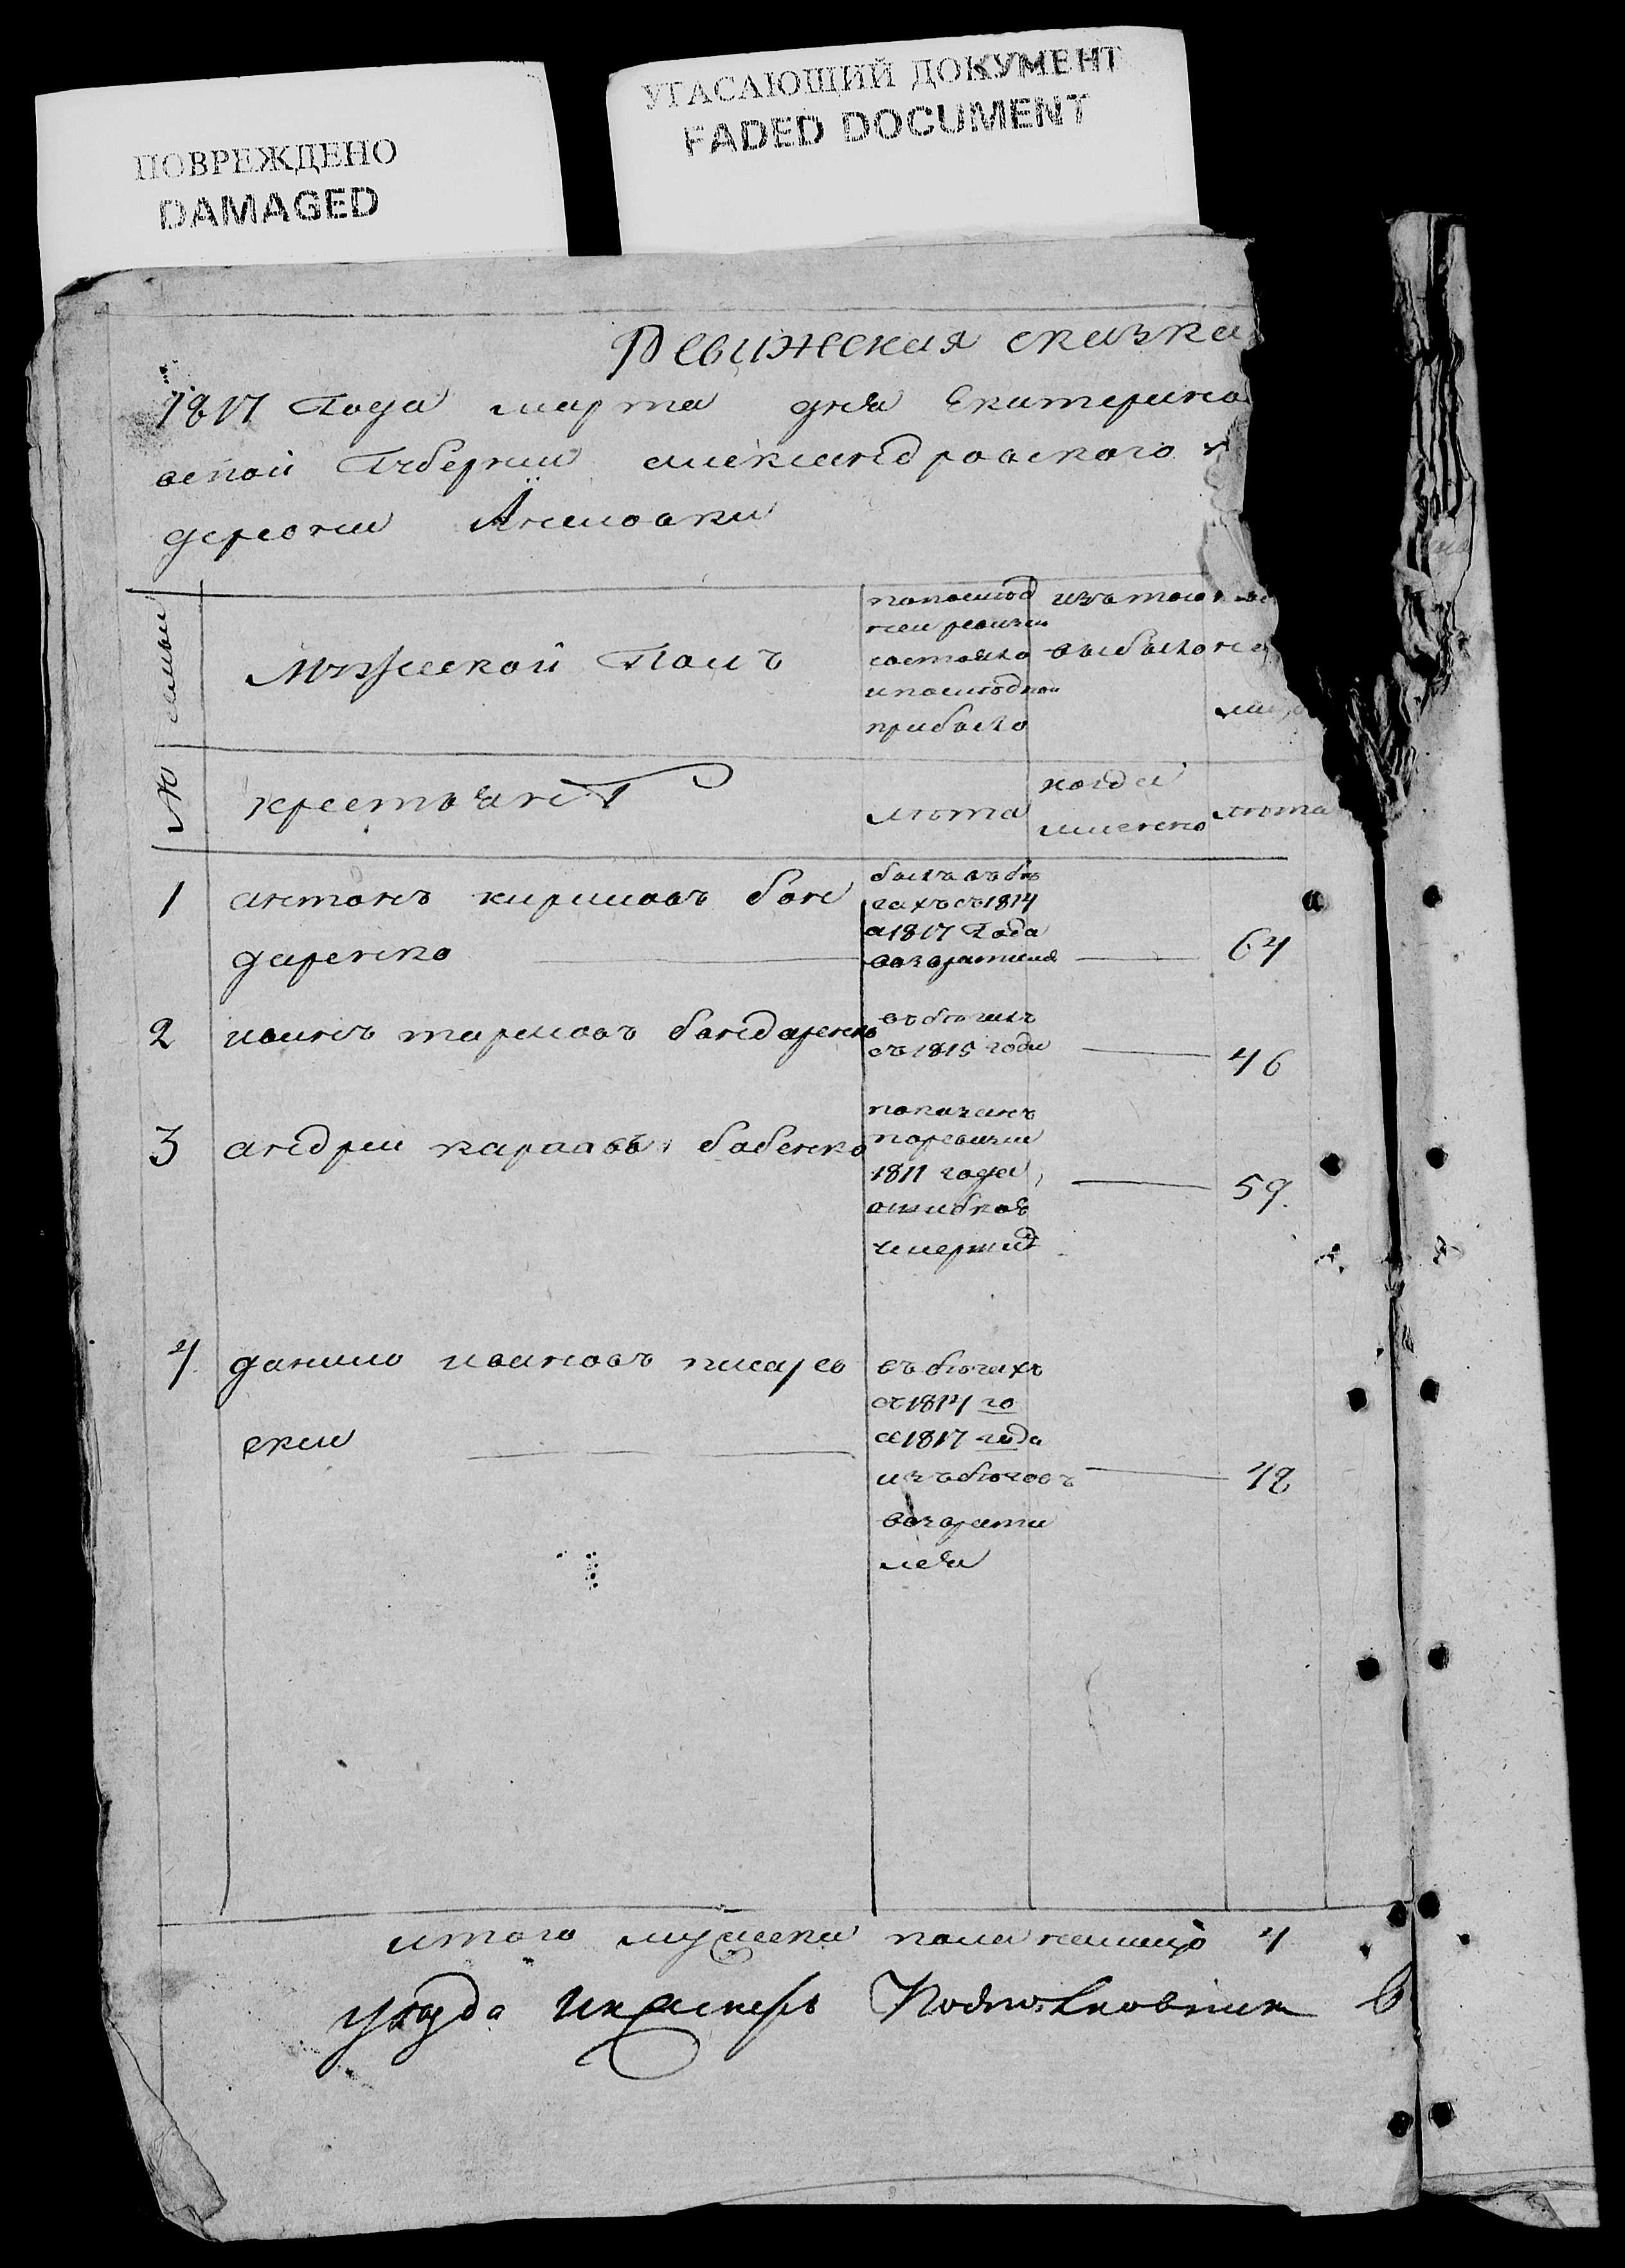 ПОВРЕЖДЕНО
DAMAGED
УГАСАЮЩИЙ ДОКУМЕНТ
FADED DOCUMENT
Ревижская сказка
1817 Года марта дня Екатерино
вской Губернии александровского
деревни
№ семьи
Мужеской Полъ
по последней ревизии состояло и после одной прибыло
изъ того
выбыло
Крестьянъ
лета
когда имянно
лета
1 антонъ кириловъ бон
даренко
былъ въ бегахъ съ 1814
а 1817 Года
возвратился
64
2 иванъ тарасовъ бондаренко
въ бегахъ
съ 1815 года
46
3 андрей карповъ бабенко
показанъ
по ревизии
1811 года
ошибкою
умершимъ
59
4 данило ивановъ писарев
ски
въ бегахъ
съ 1814 го
а 1817 года
изъ беговъ
возврати
лся
48
итого мужеска пола на лицо 4
уезда Подполковник